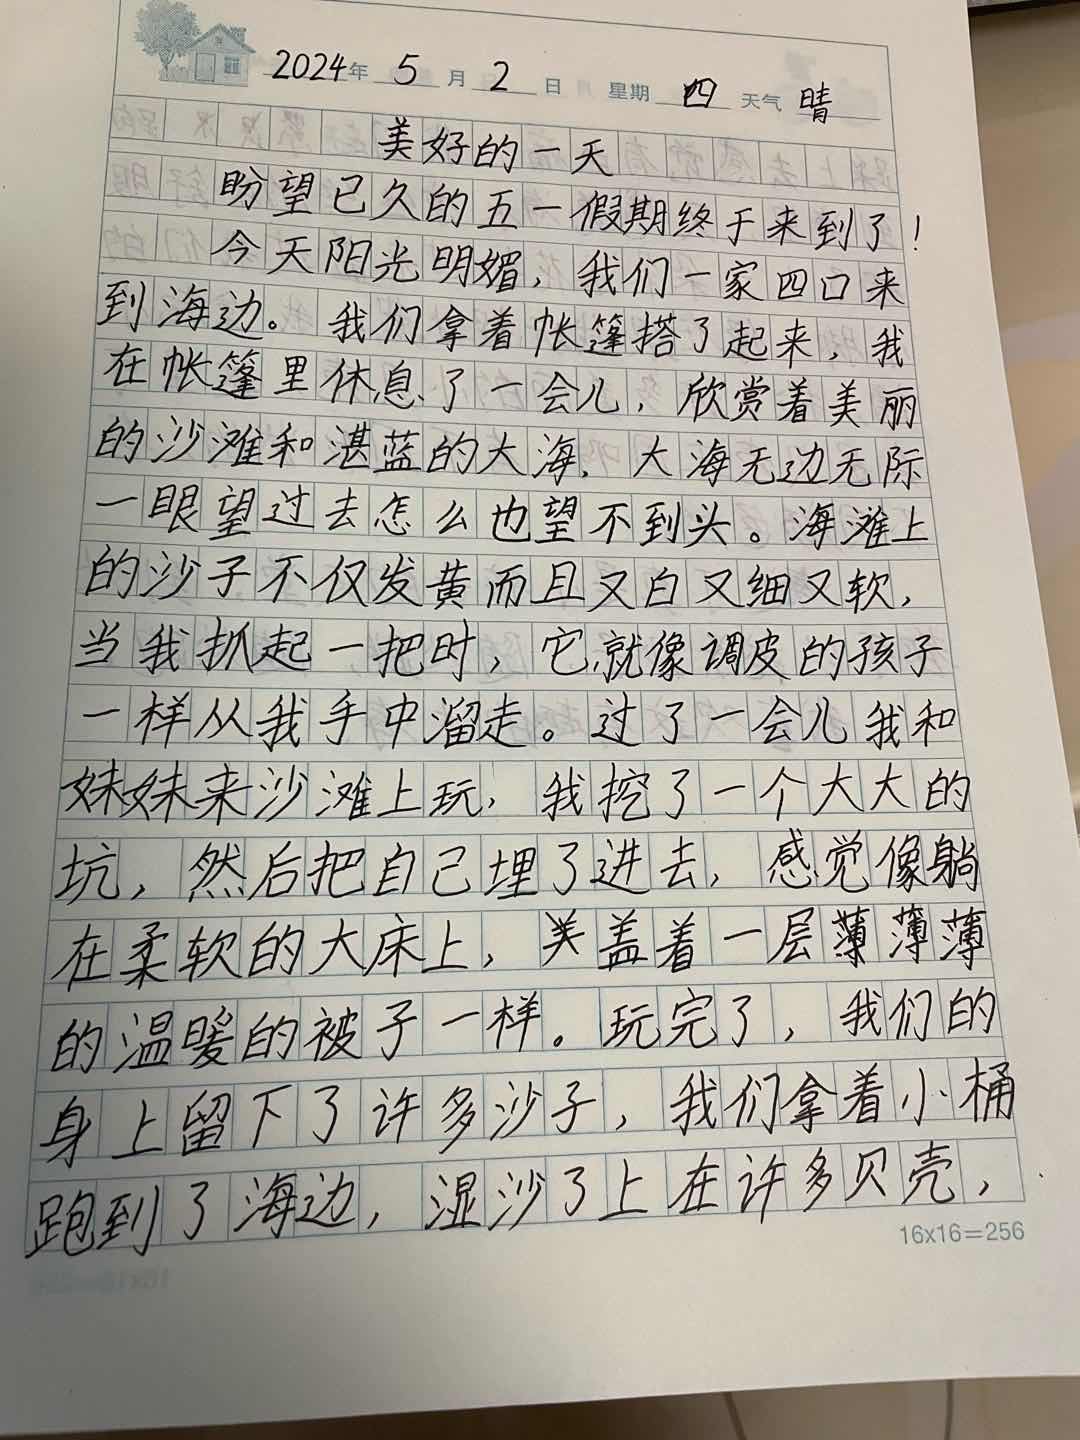 2024年 5 月 2 日 星期 四 天气 晴
美好的一天
盼望已久的五一假期终于来到了!
今天阳光明媚,我们一家四口来
到海边。我们拿着帐篷搭了起来,我
在帐篷里休息了一会儿,欣赏着美丽
的沙滩和湛蓝的大海.大海无边无际
一眼望过去怎么也望不到头。海滩上
的沙子不仅发黄而且又白又细又软,
当我抓起一把时,它就像调皮的孩子
一样从我手中溜走。过了一会儿我和
妹妹来沙滩上玩,我挖了一个大大的
坑,然后把自己埋了进去,感觉像躺
在柔软的大床上,盖着一层薄薄薄
的温暖的被子一样。玩完了,我们的
身上留下了许多沙子,我们拿着小桶
跑到了海边,湿沙了上在许多贝壳,
16x16=256